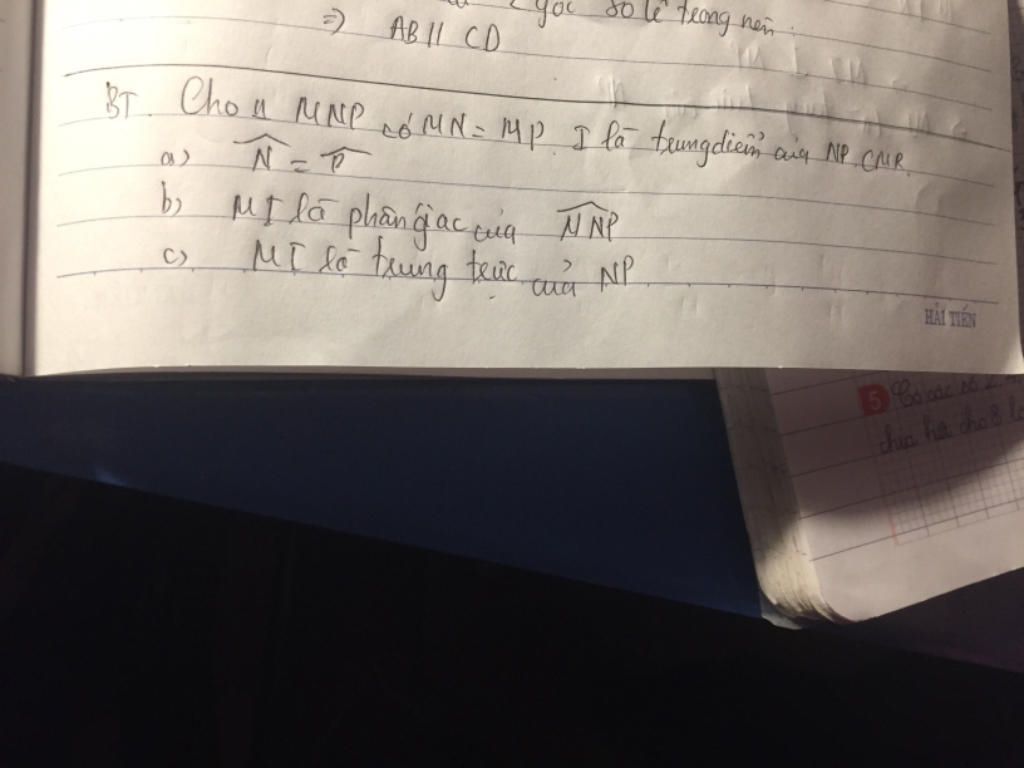 góc so le trong nên.
=> AB // CD
BT. Cho MNP có MN = MP. I là trung điểm của NP. CMR.
a) N = P
b) MI là phân giác của MNP
c) MI là trung trực của NP
HẢI TIẾN
5 Có các số 2
chia hết cho 8